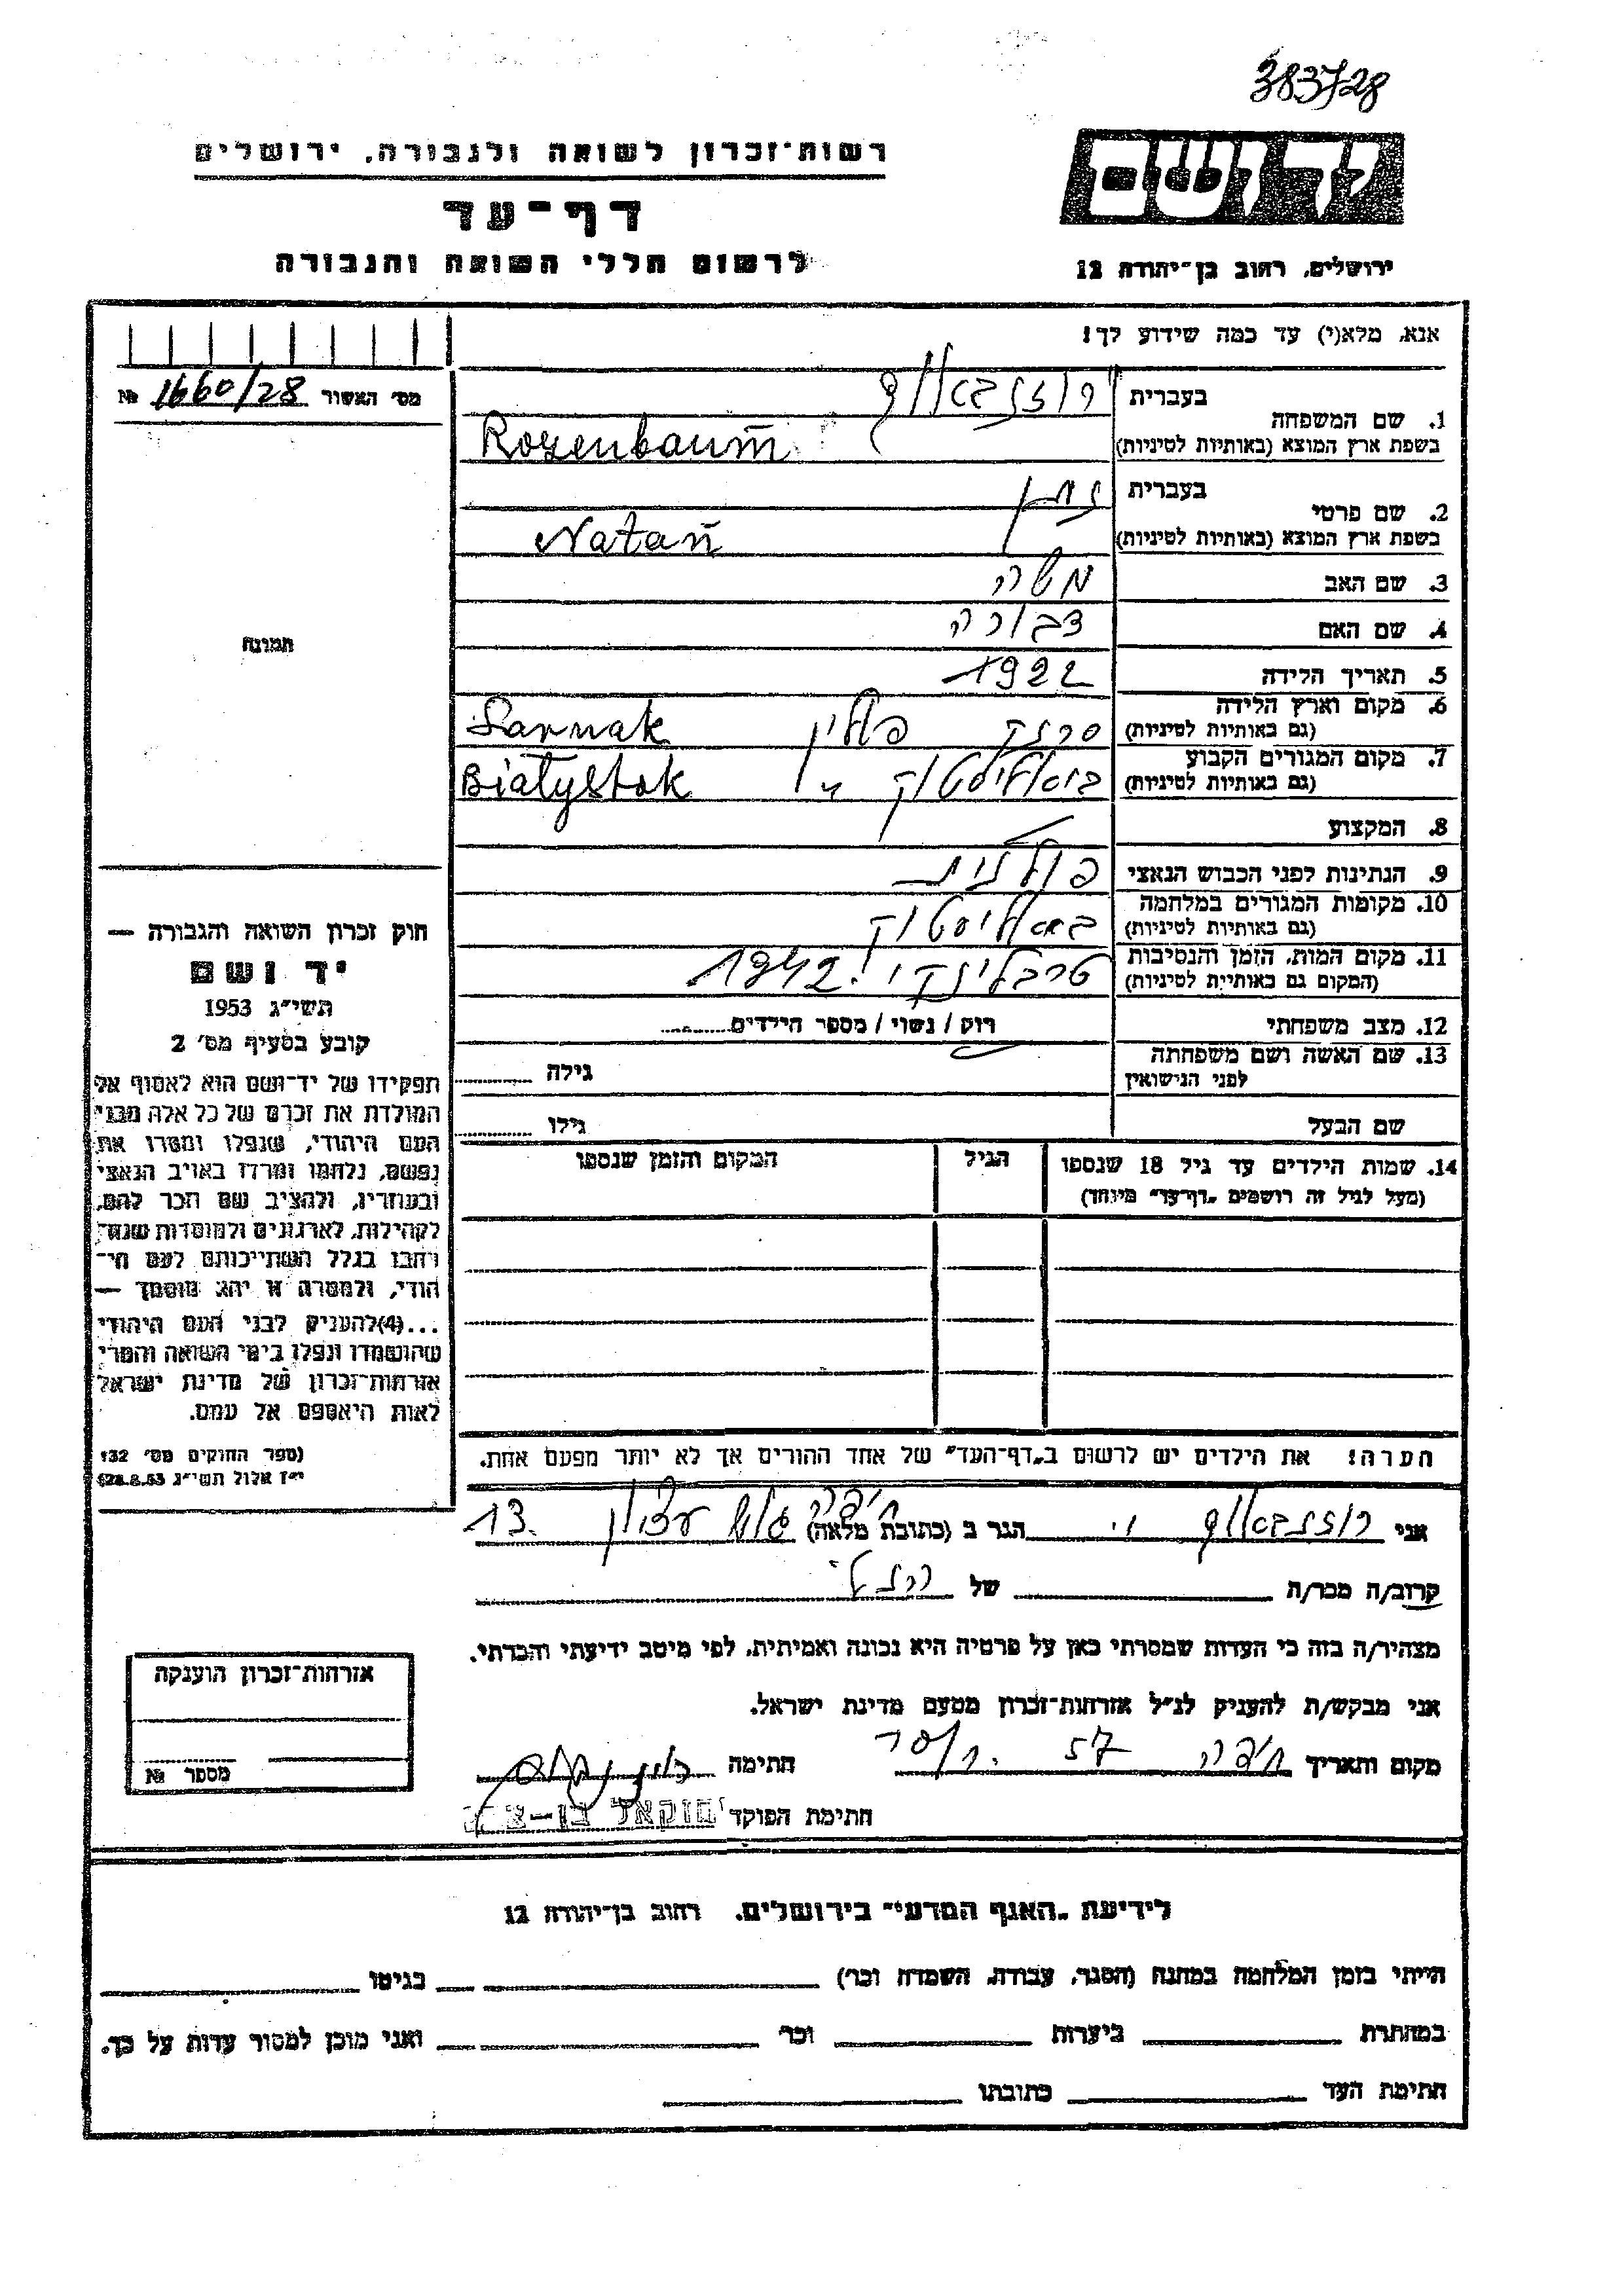 383728
רשות־זכרון לשואה ולגבורה, ירושלים
יד ושם
דף־עד
לרשום חללי השואה והגבורה
ירושלים, רחוב בן־יהודה 12
אנא, מלא(י) עד כמה שידוע לך!
מס׳ האשור 1660/28 №
1. שם המשפחה
בעברית רוזנבאום
בשפת ארץ המוצא (באותיות לטיניות) Rozenbaum
2. שם פרטי
בעברית נתן
בשפת ארץ המוצא (באותיות לטיניות) Natan
3. שם האב משה
4. שם האם דבורה
5. תאריך הלידה 1922
6. מקום וארץ הלידה סרנק פולין Sarnak
(גם באותיות לטיניות)
7. מקום המגורים הקבוע ביאליסטוק Białystok
(גם באותיות לטיניות)
8. המקצוע
9. הנתינות לפני הכבוש הנאצי פולנית
10. מקומות המגורים במלחמה ביאליסטוק
(גם באותיות לטיניות)
11. מקום המות, הזמן והנסיבות טרבלינקי 1942
(המקום גם באותיות לטיניות)
12. מצב משפחתי רוק / נשוי / מספר הילדים
13. שם האשה ושם משפחתה
לפני הנישואין גילה
שם הבעל גילו
14. שמות הילדים עד גיל 18 שנספו
(מעל לגיל זה רושמים „דף־עד״ מיוחד)
הגיל
המקום והזמן שנספו
הערה: את הילדים יש לרשום ב„דף־העד״ של אחד ההורים אך לא יותר מפעם אחת.
תמונה
חוק זכרון השואה והגבורה —
יד ושם
תשי״ג 1953
קובע בסעיף מס׳ 2
תפקידו של יד־ושם הוא לאסוף אל
המולדת את זכרם של כל אלה מבני
העם היהודי, שנפלו ומסרו את
נפשם, נלחמו ומרדו באויב הנאצי
ובעוזריו, ולהציב שם וזכר להם,
לקהילות, לארגונים ולמוסדות שנח־
רבו בגלל השתייכותם לעם הי־
הודי, ולמטרה זו יהא מוסמך —
...(4)להעניק לבני העם היהודי
שהושמדו ונפלו בימי השואה והמרי
אזרחות־זכרון של מדינת ישראל
לאות היאספם אל עמם.
(ספר החוקים מס׳ 132
י״ז אלול תשי״ג 28.8.53)
אני רוזנבאום י. הגר ב (כתובת מלאה) חיפה גוש עציון 13
קרוב/ה מכר/ה של הנ״ל
מצהיר/ה בזה כי העדות שמסרתי כאן על פרטיה היא נכונה ואמיתית, לפי מיטב ידיעתי והכרתי.
אני מבקש/ת להעניק לנ״ל אזרחות־זכרון מטעם מדינת ישראל.
מקום ותאריך חיפה 57 חתימה
חתימת הפוקד
אזרחות־זכרון הוענקה
מספר №
לידיעת „האגף המדעי״ בירושלים, רחוב בן־יהודה 12
הייתי בזמן המלחמה במחנה (הסגר, עבודה, השמדה וכו׳) בגיטו
במחתרת ביערות וכו׳ ואני מוכן למסור עדות על כך.
חתימת העד כתובתו